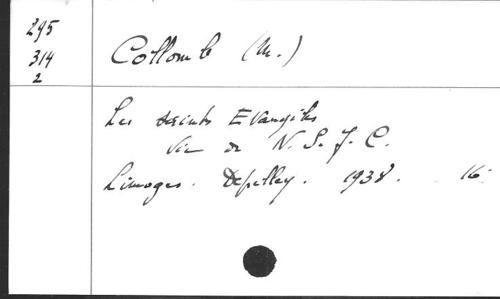 295
314
2
Collomb (M.)
Les saints Evangiles
Vie de N. S. J. C.
Limoges. Depelley. 1938. 16